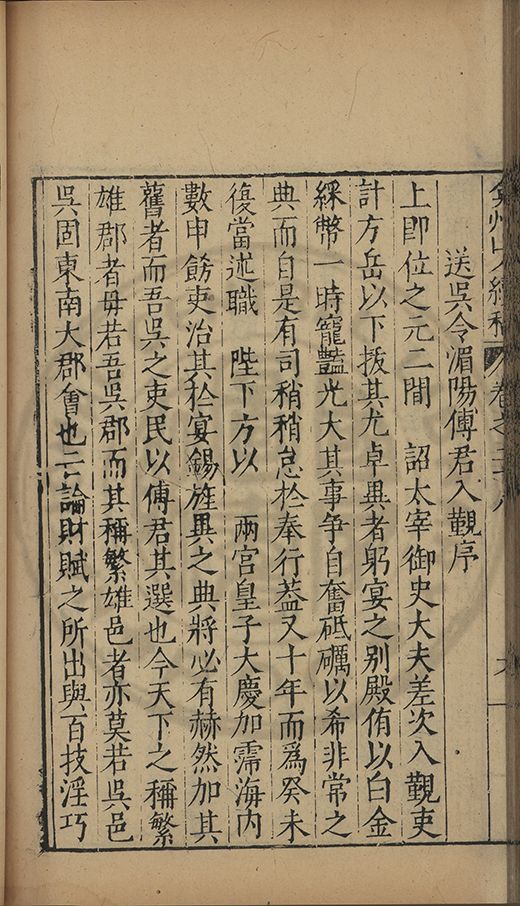 弇州山人續稿 卷之二十八
送吳令湄陽傅君入覲序
上即位之元二間 詔太宰御史大夫差次入覲吏
計方岳以下拔其尤卓異者躬宴之别殿侑以白金
綵幣一時寵豔光大其事爭自奮砥礪以希非常之
典而自是有司稍稍怠於奉行葢又十年而爲癸未
復當述職 陛下方以 兩宮皇子大慶加霈海内
數申飭吏治其於宴錫旌異之典將必有赫然加其
舊者而吾吳之吏民以傅君其選也今天下之稱繁
雄郡者毋若吾吳郡而其稱繁雄邑者亦莫若吳邑
吳固東南大郡會也亡論財賦之所出與百技淫巧